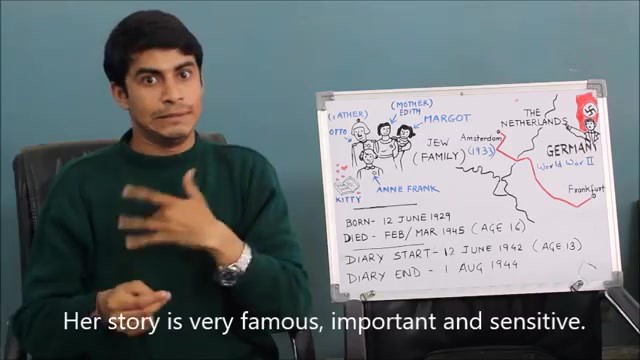 (FATHER)
OTTO
(MOTHER)
EDITH
MARGOT
JEW
(FAMILY)
ANNE FRANK
KITTY
THE
NETHERLANDS
Amsterdam
(1933)
GERMANY
World War II
Frankfurt
BORN- 12 JUNE 1929
DIED- FEB/MAR 1945 (AGE 16)
DIARY START- 12 JUNE 1942 (AGE 13)
DIARY END - 1 AUG 1944
Her story is very famous, important and sensitive.